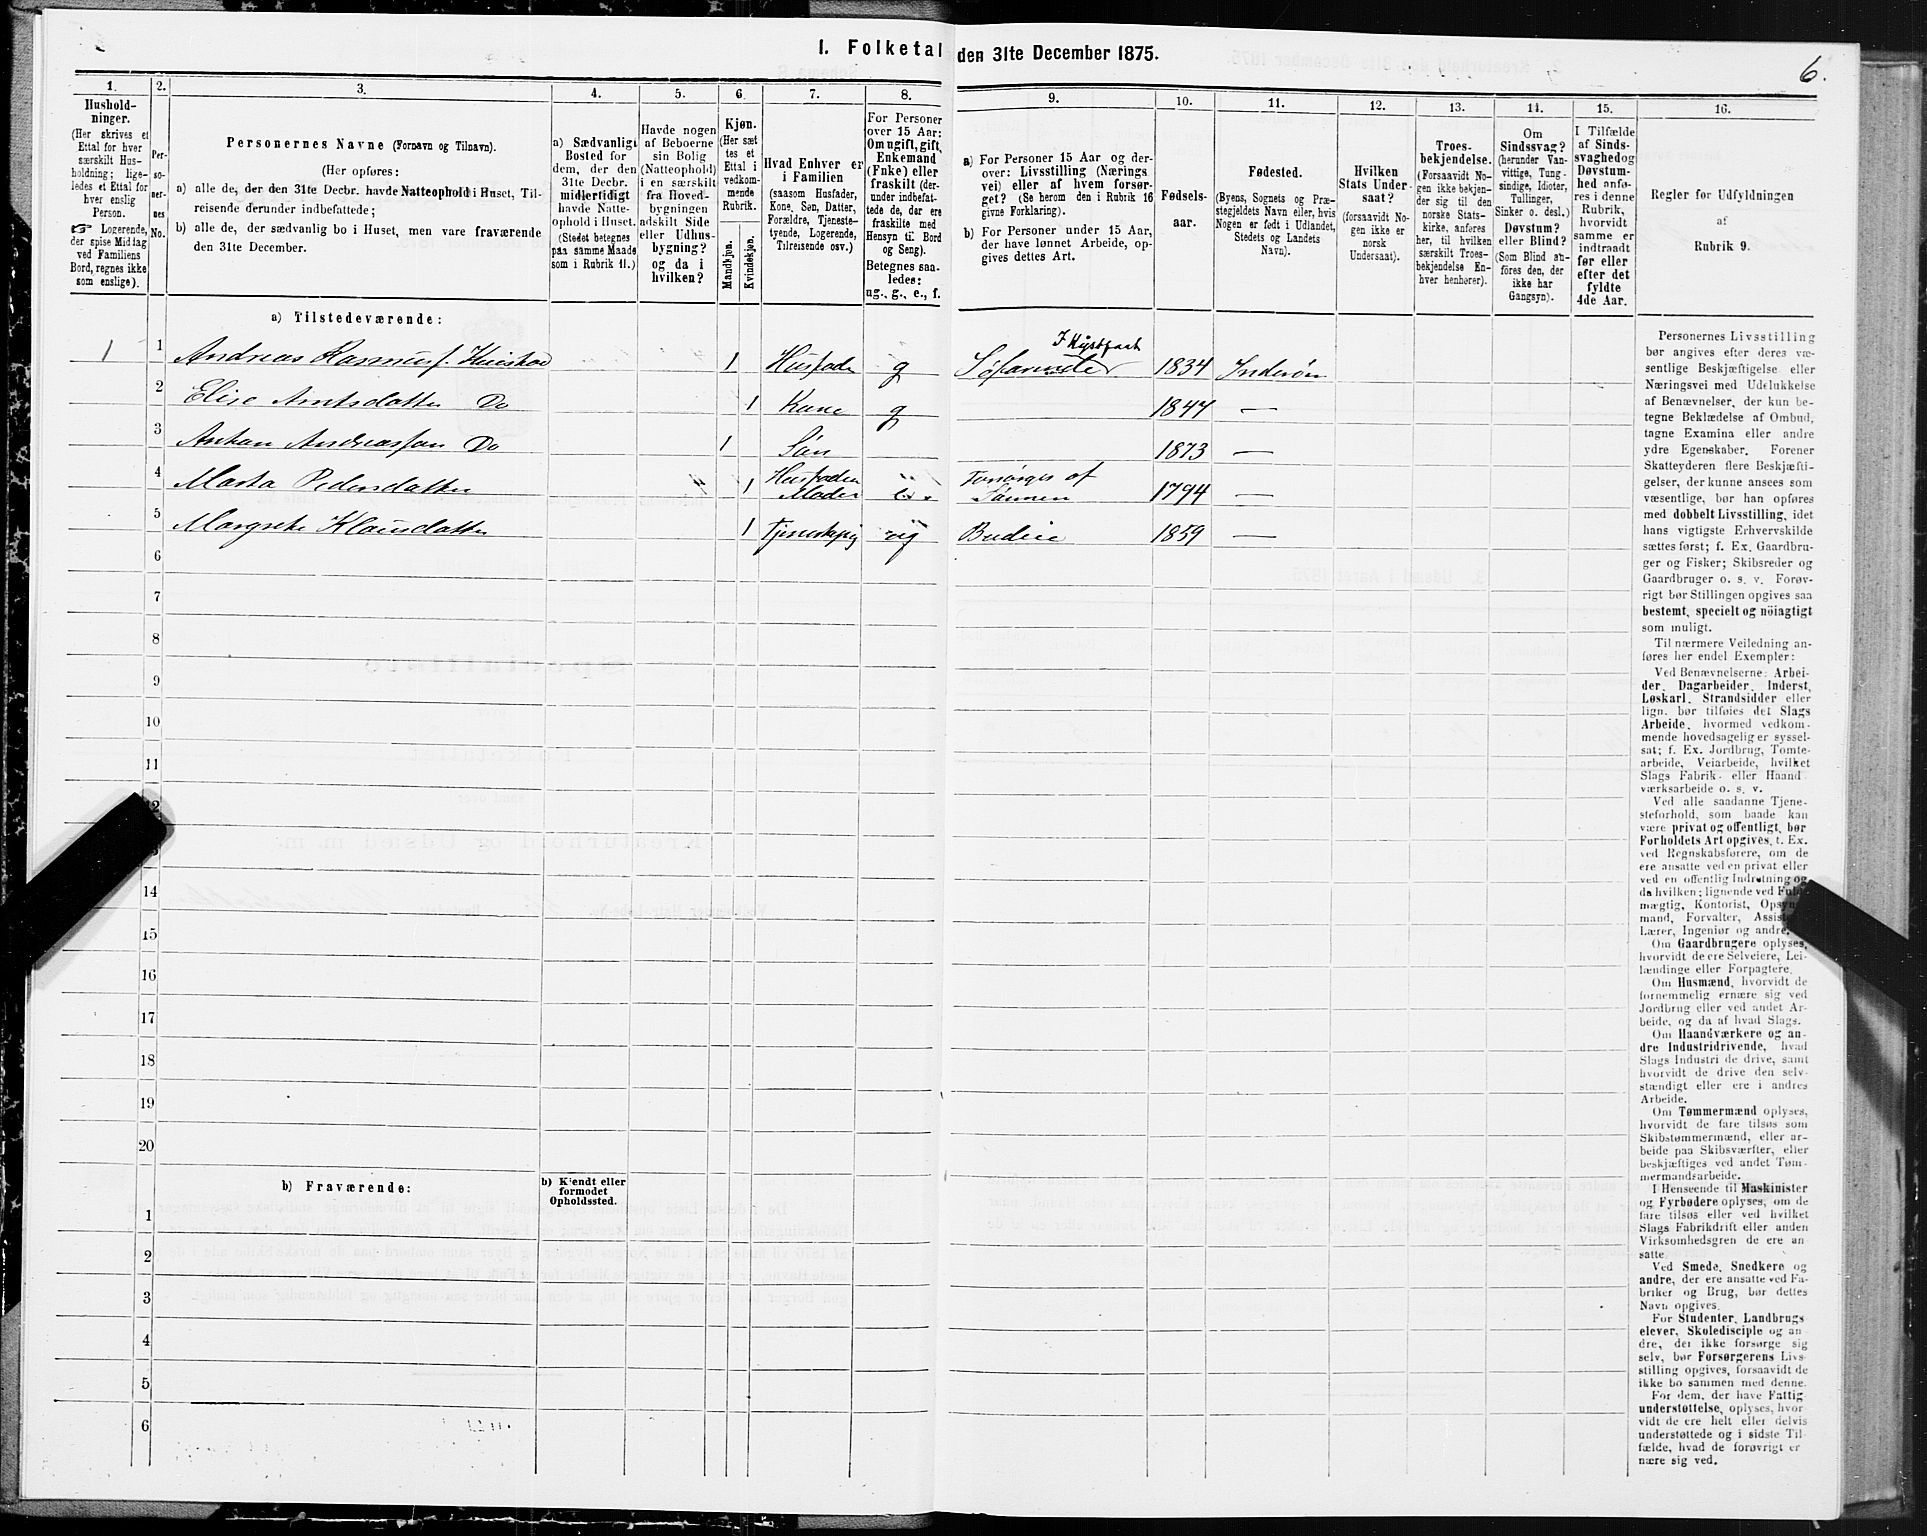 I. Folketal den 31te December 1875.
6.
1.
Hushold-
ninger.
(Her skrives et
Ettal for hver
særskilt Hus-
holdning; lige-
ledes et Ettal for
hver enslig
Person.
☞ Logerende,
der spise Middag
ved Familiens
Bord, regnes ikke
som enslige).
2.
Per-
so-
ner-
nes
No.
3.
Personernes Navne (Fornavn og Tilnavn).
(Her opføres:
a) alle de, der den 31te Decbr. havde Natteophold i Huset, Til-
reisende derunder indbefattede;
b) alle de, der sædvanlig bo i Huset, men vare fraværende
den 31te December.
4.
a) Sædvanligt
Bosted for
dem, der den
31te Decbr.
midlertidigt
havde Natte-
ophold i Huset.
(Stedet betegnes
paa samme Maade
som i Rubrik 11.)
5.
Havde nogen
af Beboerne
sin Bolig
(Natteophold)
i en særskilt
fra Hoved-
bygningen
adskilt Side
eller Udhus-
bygning?
og da i
hvilken?
6.
Kjøn.
(Her sæt
tes et
Ettal i
vedkom-
mende
Rubrik.
Mandkjøn.
Kvindekjøn.
7.
Hvad Enhver er
i Familien
(saasom Husfader,
Kone, Søn, Datter,
Forældre, Tjeneste-
tyende, Logerende,
Tilreisende osv.)
8.
For Personer
over 15 Aar:
Om ugift, gift,
Enkemand
(Enke) eller
fraskilt (der-
under indbefat-
tede de, der ere
fraskilte med
Hensyn til Bord
og Seng).
Betegnes saa-
ledes:
ug., g., e., f.
9.
a) For Personer 15 Aar og der-
over: Livsstilling (Nærings
vei) eller af hvem forsør-
get? (Se herom den i Rubrik 16
givne Forklaring).
b) For Personer under 15 Aar,
der have lønnet Arbeide, op-
gives dettes Art.
10.
Fødsels-
aar.
11.
Fødested.
(Byens, Sognets og Præ-
stegjeldets Navn eller, hvis
Nogen er født i Udlandet,
Stedets og Landets
Navn).
12.
Hvilken
Stats Under-
saat?
(forsaavidt No-
gen ikke er
norsk
Undersaat).
13.
Troes-
bekjendelse.
(Forsaavidt No-
gen ikke bekjen-
der sig til den
norske Stats-
kirke, anføres
her, til hvilken
særskilt Troes-
bekjendelse En-
hver henhører).
14.
Om
Sindssvag?
(herunder Van-
vittige, Tung-
sindige, Idioter,
Tullinger,
Sinker o. desl.)
Døvstum?
eller Blind?
(Som Blind an-
føres den, der
ikke har
Gangsyn).
15.
I Tilfælde
af Sinds-
svaghed og
Døvstum-
hed anfø-
res i denne
Rubrik,
hvorvidt
samme er
indtraadt
før eller
efter det
fyldte
4de Aar.
16.
Regler for Udfyldningen
af
Rubrik 9.
a) Tilstedeværende:
1 1 Andreas Rasmus. 1 Husfader g I Kystfart 1834 Inderøen
2 Elise Arntsdatter Do 1 Kone g 1847 —
3 Anton Andreassen Do 1 Søn 1873 —
4 Marta Pedersdatter 1 Husfaden Moder Forsørges af Sønnen 1794 —
5 Margrete Klausdatter 1 ug Budeie 1859 —
6
7
8
9
10
11
12
14
15
16
17
18
19
20
b) Fraværende:
b) Kjendt eller
formodet
Opholdssted.
1
2
3
4
5
6
Personernes Livsstilling
bør angives efter deres væ-
sentlige Beskjæftigelse eller
Næringsvei med Udelukkelse
af Benævnelser, der kun be-
tegne Beklædelse af Ombud,
tagne Examina eller andre
ydre Egenskaber. Forener
Skatteyderen flere Beskjæfti-
gelser, der kunne ansees som
væsentlige, bør han opføres
med dobbelt Livsstilling, idet
hans vigtigste Erhvervskilde
sættes først; f. Ex. Gaardbru-
ger og Fisker; Skibsreder og
Gaardbruger o. s. v. Forøv-
rigt bør Stillingen opgives saa
bestemt, specielt og nöiagtigt
som muligt.
Til nærmere Veiledning an-
føres her endel Exempler:
Ved Benævnelserne: Arbei-
der, Dagarbeider, Inderst,
Løskarl, Strandsidder eller
lign. bør tilføies det Slags
Arbeide, hvormed vedkom-
mende hovedsagelig er syssel-
sat; f. Ex. Jordbrug, Tomte-
arbeide, Veiarbeide, hvilket
Slags Fabrik- eller Haand
værksarbeide o. s. v.
Ved alle saadanne Tjene-
steforhold, som baade kan
være privat og offentligt, bør
Forholdets Art opgives, f. Ex.
ved Regnskabsførere, om de
ere ansatte ved en privat eller
ved en offentlig Indretning og
da hvilken; lignende ved
mægtig, Kontorist,
mand, Forvalter,
Lærer, Ingeniør og andre.
Om Gaardbrugere oplyses,
hvorvidt de ere Selveiere, Lei-
lændinge eller Forpagtere.
Om Husmænd, hvorvidt de
fornemmelig ernære sig ved
Jordbrug eller ved andet Ar-
beide, og da af hvad Slags.
Om Haandværkere og an-
dre Industridrivende, hvad
Slags Industri de drive, samt
hvorvidt de drive den selv-
stændigt eller ere i andres
Arbeide.
Om Tømmermænd oplyses,
hvorvidt de fare tilsøs som
Skibstømmermænd, eller ar-
beide paa Skibsværfter, eller
beskjæftiges ved andet Tøm-
mermandsarbeide.
I Henseende til Maskinister
og Fyrbødere oplyses, om de
fare tilsøs eller ved hvilket
Slags Fabrikdrift eller anden
Virksomhedsgren de ere an-
satte.
Ved Smede, Snedkere og
andre, der ere ansatte ved Fa-
briker og Brug, bør dettes
Navn opgives.
For Studenter, Landbrugs
elever, Skoledisciple og an-
dre, der ikke forsørge sig
selv, bør Forsørgerens Livs-
stilling opgives, forsaavidt de
ikke bo sammen med denne.
For dem, der have Fattig
understøttelse, oplyses, hvor-
vidt de ere helt eller delvis
understøttede og i sidste Til-
fælde, hvad de forøvrigt er
nære sig ved.